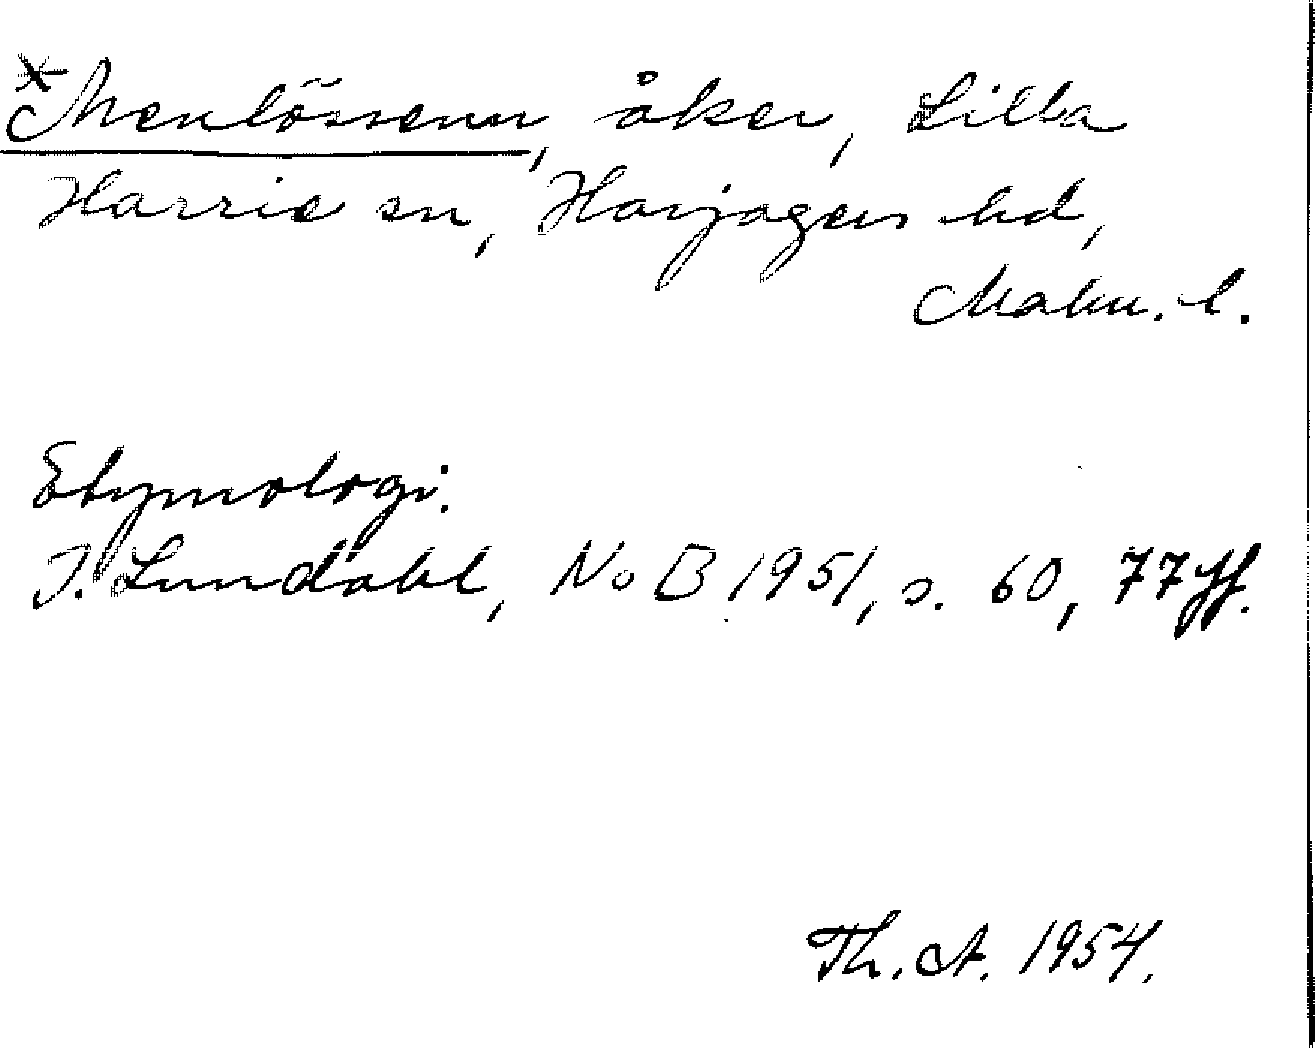 *Menlössenn, åker, Lilla
Harrie sn, Harjagers hd,
Malm. l.
Etymologi.
I. Lundahl, NoB 1951, s. 60, 77 ff.
Th. A. 1954.